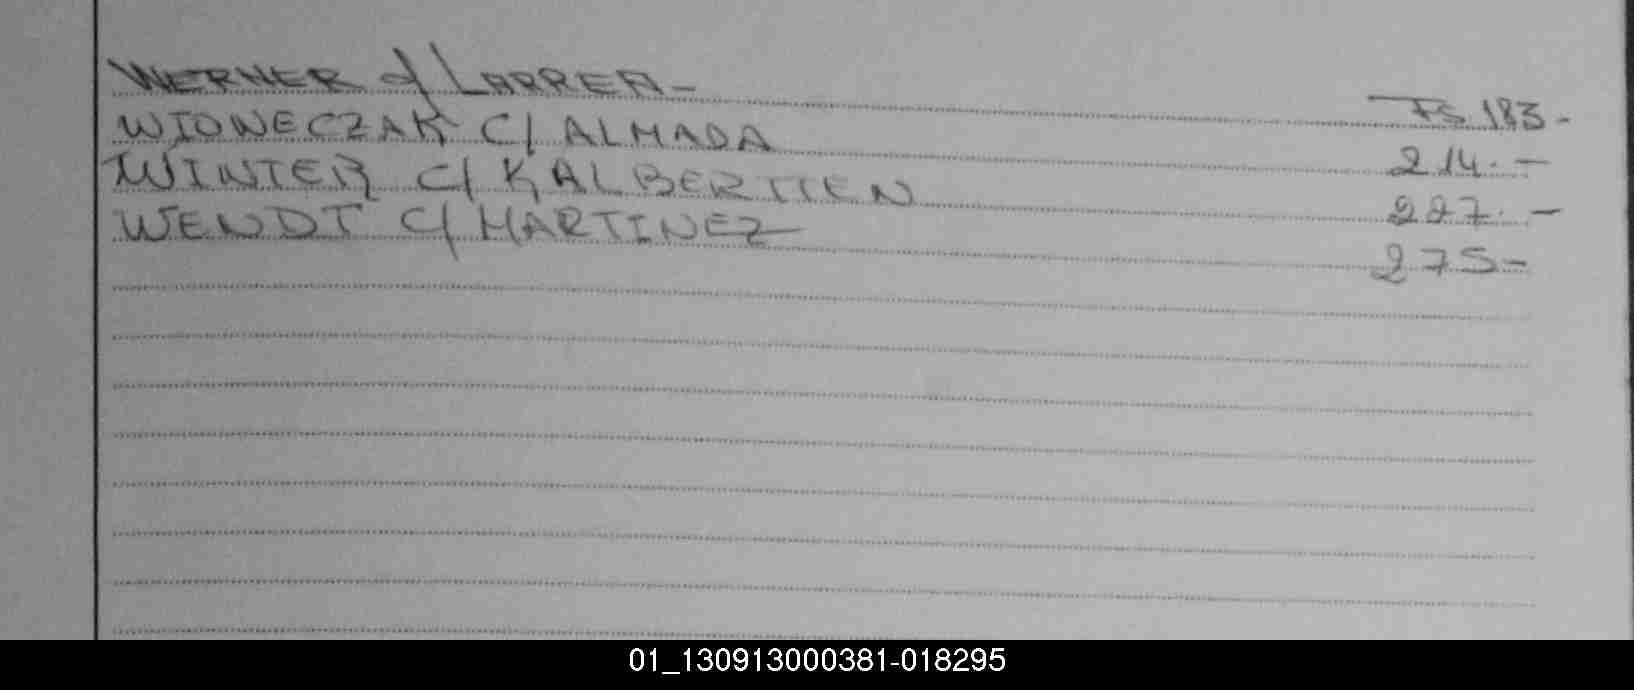 WERNER c/ LARREA- Fs. 183.-
WIONECZAK C/ ALMADA 214.-
WINTER C/ KALBERTTEN 227.-
WENDT C/ MARTINEZ 275-
01_130913000381-018295